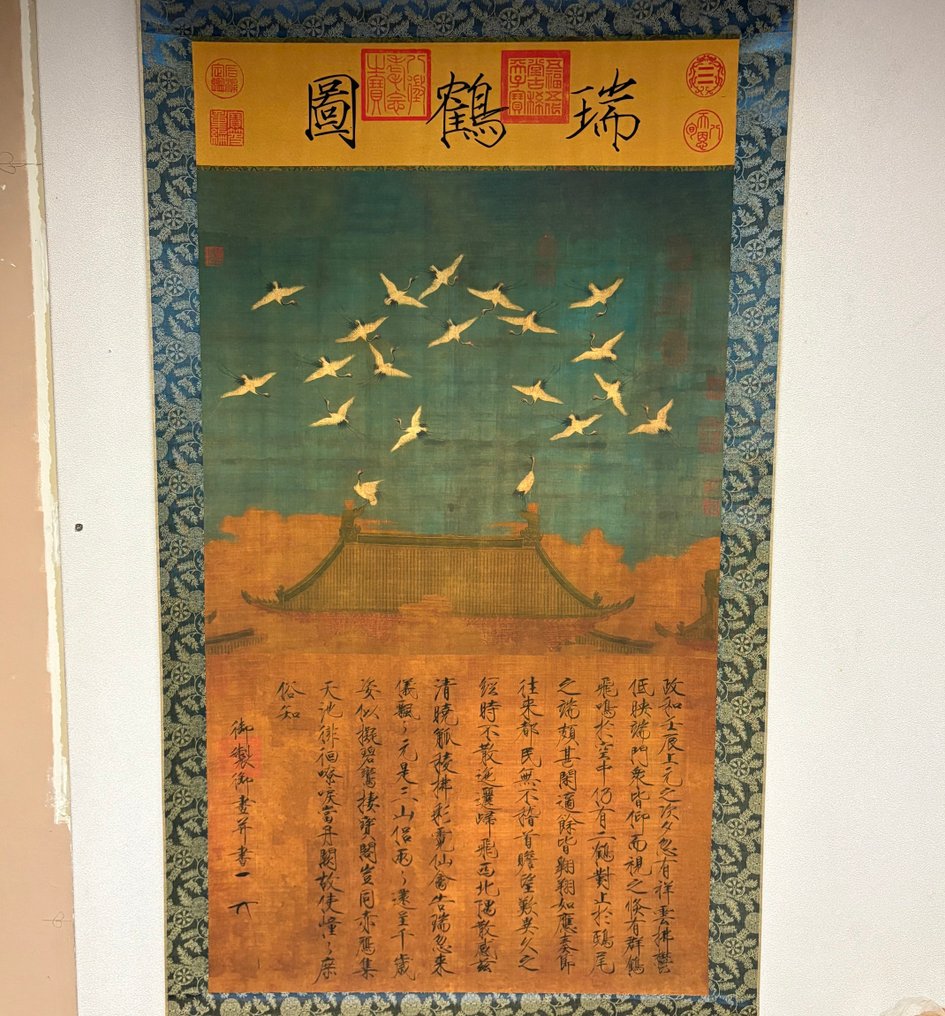 瑞鶴圖
五福五代堂古稀天子寶
八徵耄念之寶
政和壬辰上元之次夕忽有祥雲拂鬱
低映端門衆皆仰而視之倏有群鶴
飛鳴於空中仍有二鶴對止於鴟尾
之端頗甚閑適餘皆翱翔如應奏節
往來都民無不稽首瞻望歎異久之
經時不散迤邐歸飛西北隅散感茲
清曉觚稜拂彩霓仙禽告瑞忽來
儀飄〻元是三山侶兩〻還呈千歲
姿似擬碧鸞棲寶閣豈同赤鴈集
天池徘徊嘹唳當丹闕故使憧〻庶
俗知
御製御畫并書